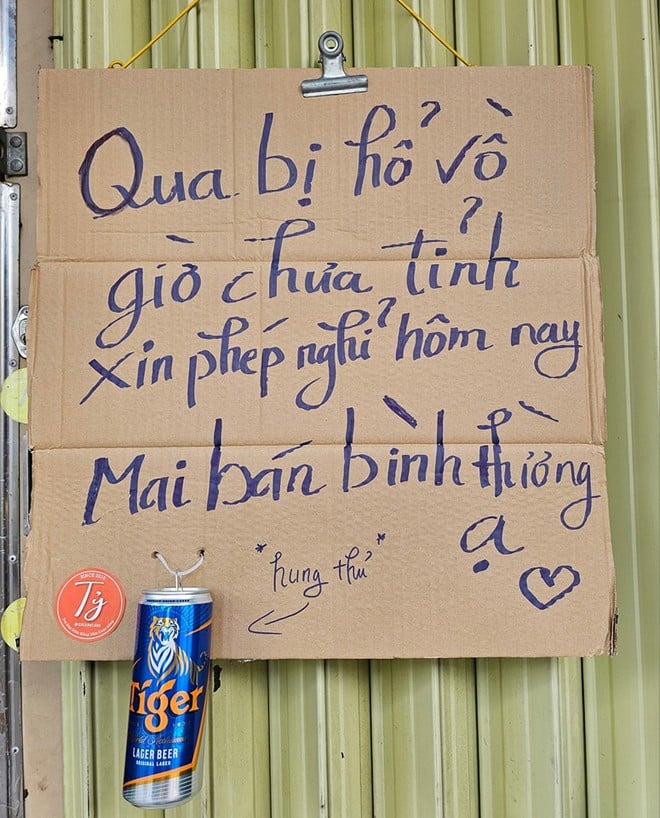 Qua bị hổ vồ
giờ chưa tỉnh
xin phép nghỉ hôm nay
Mai bán bình thường
ạ
*hung thủ*
SINCE 2018
Tỷ
Tiger
LAGER BEER
ORIGINAL LAGER